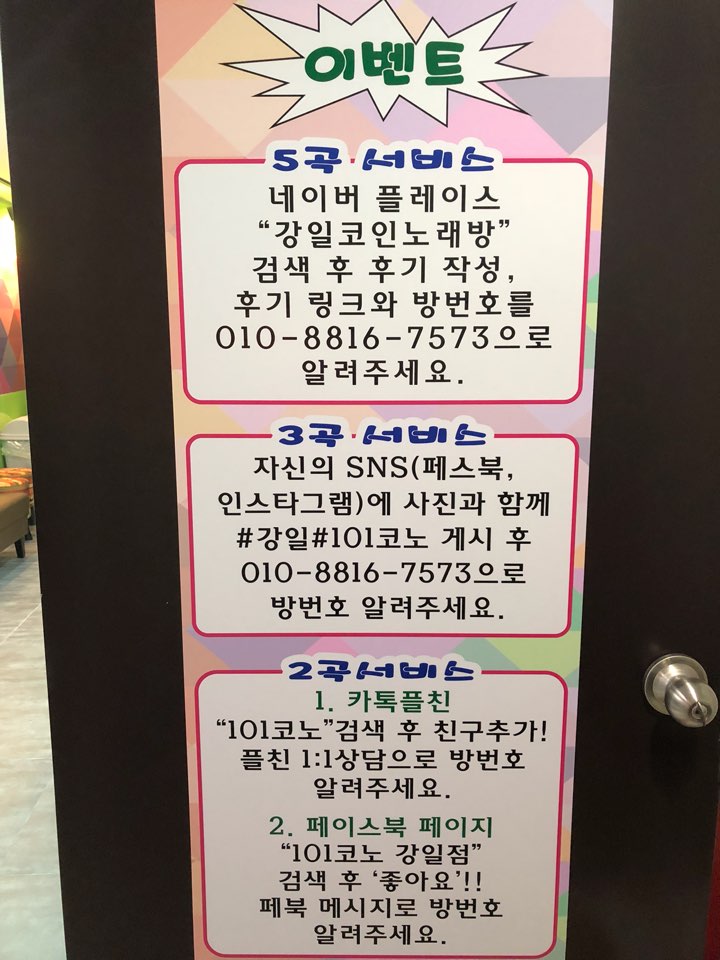 이벤트
5곡 서비스
네이버 플레이스
“강일코인노래방”
검색 후 후기 작성,
후기 링크와 방번호를
010-8816-7573으로
알려주세요.
3곡 서비스
자신의 SNS(페스북,
인스타그램)에 사진과 함께
#강일#101코노 게시 후
010-8816-7573으로
방번호 알려주세요.
2곡서비스
1. 카톡플친
“101코노”검색 후 친구추가!
플친 1:1상담으로 방번호
알려주세요.
2. 페이스북 페이지
“101코노 강일점”
검색 후 ‘좋아요’!!
페북 메시지로 방번호
알려주세요.